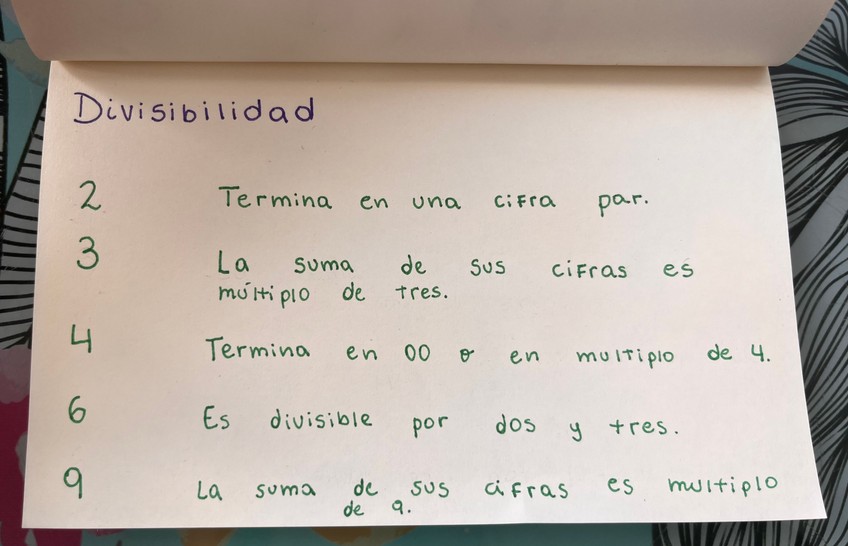 Divisibilidad
2 Termina en una cifra par.
3 La suma de sus cifras es
múltiplo de tres.
4 Termina en 00 o en multiplo de 4.
6 Es divisible por dos y tres.
9 La suma de sus cifras es multiplo
de 9.